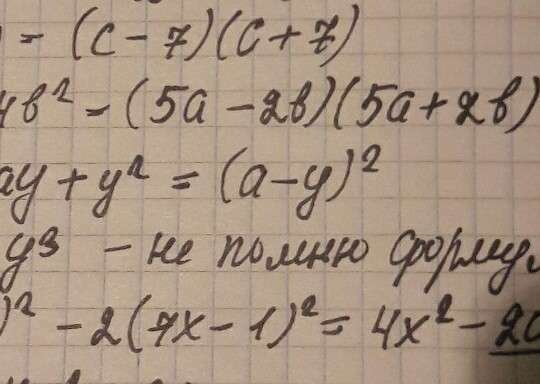 = (c - 7)(c + 7)
4в² = (5а - 2в)(5а + 2в)
ay + y² = (a - y)²
y³ - не помню формул
)² - 2(7x - 1)² = 4x² - 20